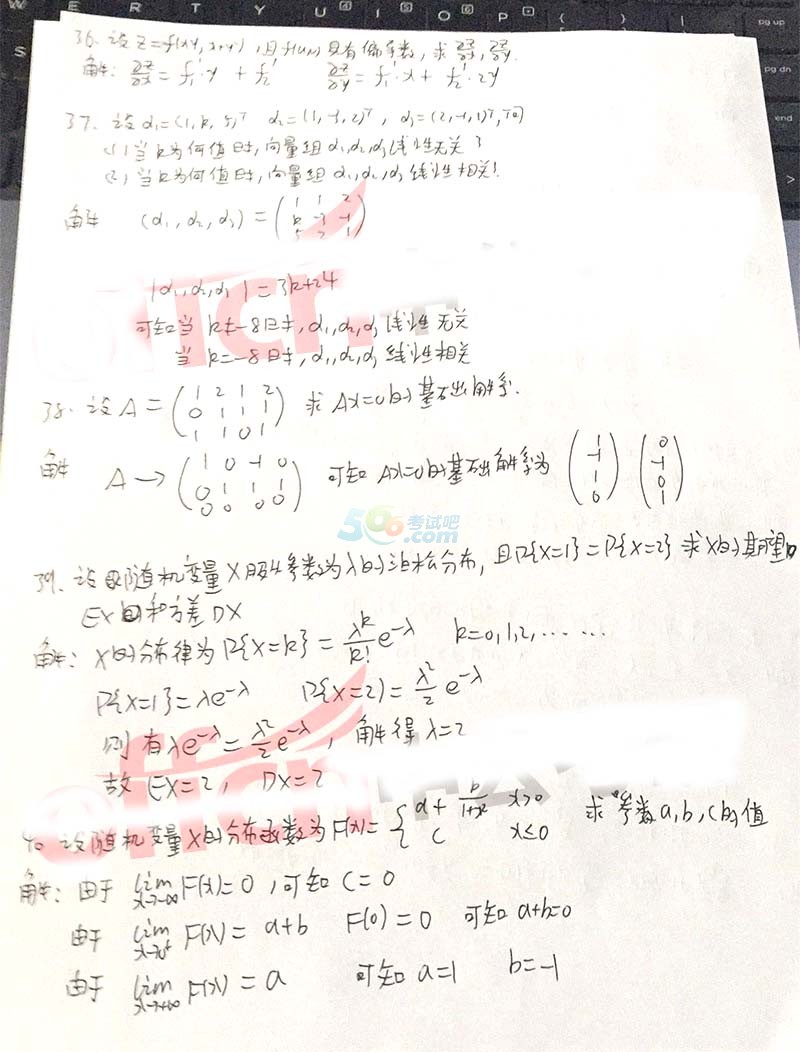 36. 设 z=f(xy, x+y²), 且f(u,v)具有偏导数, 求 ∂z/∂x, ∂z/∂y.
解: ∂z/∂x = f₁'·y + f₂' ∂z/∂y = f₁'·x + f₂'·2y
37. 设α₁=(1, k, 5)ᵀ α₂=(1, -3, 2)ᵀ, α₃=(2, -1, 1)ᵀ, 问
(1) 当k为何值时, 向量组 α₁,α₂,α₃ 线性无关?
(2) 当k为何值时, 向量组 α₁,α₂,α₃ 线性相关!
解 (α₁, α₂, α₃) = (
1 1 2
k -3 -1
5 2 1
)
|α₁,α₂,α₃| = 3k+24
可知当 k≠-8时, α₁,α₂,α₃ 线性无关
当 k=-8时, α₁,α₂,α₃ 线性相关
38. 设A = (
1 2 1 2
0 1 1 1
1 1 0 1
) 求 Ax=0的基础解系.
解 A → (
1 0 -1 0
0 1 1 1
0 0 0 0
) 可知 Ax=0的基础解系为 (1 -1 1 0) (0 -1 0 1)
566考试吧.com
39. 设随机变量X服从参数为λ的泊松分布, 且P{X=1}=P{X=2} 求X的期望
EX和方差DX
解: X的分布律为 P{X=k} = λᵏ/k! e^-λ k=0,1,2,……
P{X=1}=λe^-λ P{X=2)=λ²/2 e^-λ
则有λe^-λ=λ²/2 e^-λ, 解得 λ=2
故 EX=2, DX=2
40 设随机变量X的分布函数为F(x)= { a + b/(1+x²) x>0
c x≤0 求参数a,b,c的值
解: 由于 lim x→-∞ F(x)=0, 可知 C=0
由于 lim x→0⁺ F(x)= a+b F(0)=0 可知 a+b=0
由于 lim x→+∞ F(x)=a 可知 a=1 b=-1
E R T Y U I O P
{ }
pg up
pg dn
end
S